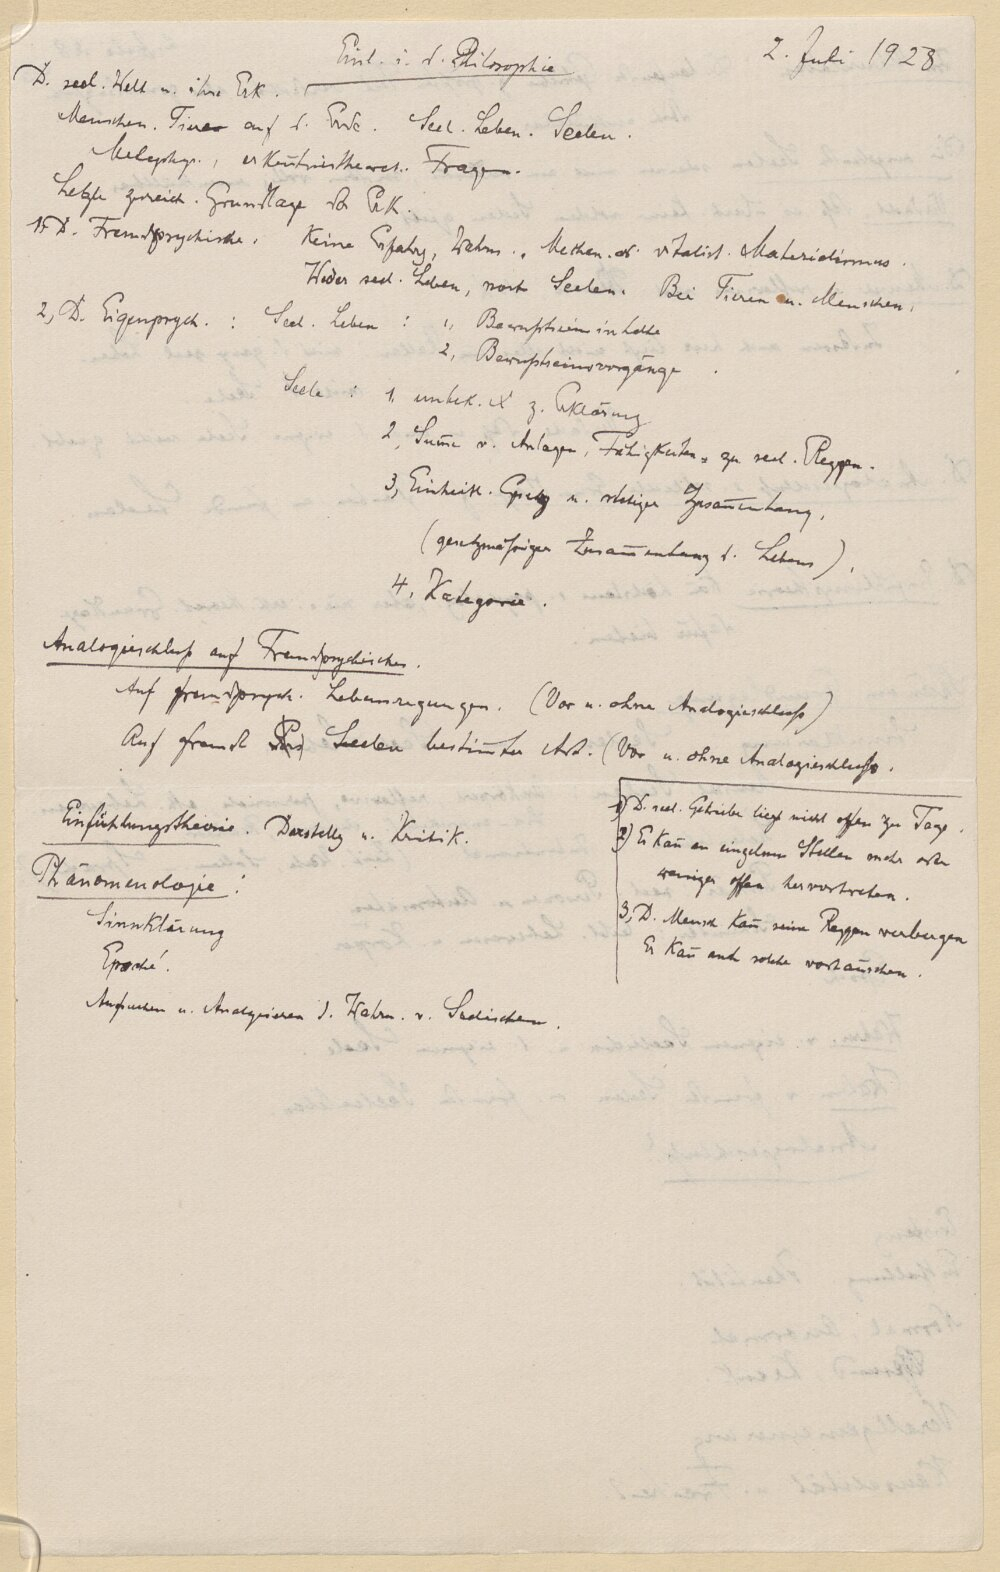 Einl. i. d. Philosophie
2. Juli 1928
D. seel. Welt u. ihre Erk.
Menschen. Tiere auf d. Erde. Seel. Leben. Seelen.
Metaphys., erkenntnistheoret. Fragen.
Letzte zureich. Grundlage der Erk.
1, D. Fremdpsychische. Keine Erfahrg, Wahrn., Mechan. od. vitalist. Materialismus.
Weder seel. Leben, noch Seelen. Bei Tieren u. Menschen.
2, D. Eigenpsych. : Seel. Leben : 1, Bewußtseinsinhalte
2, Bewußtseinsvorgänge.
Seele : 1, unbek. X z. Erklärung
2, Summe v. Anlagen, Fähigkeiten, zu seel. Reggen.
3, Einheitl. Gesetz u. stetiger Zusam̅enhang.
(gesetzmäßiger Zusam̅enhang d. Lebens).
4, Kategorie.
Analogieschluß auf Fremdpsychisches.
Auf fremdpsych. Lebensregungen. (Vor u. ohne Analogieschluß)
Auf fremde Seelen bestim̅ter Art. (Vor u. ohne Analogieschluß.
Einfühlungstheorie. Darstellg u. Kritik.
Phänomenologie:
Sinnklärung
Epoché.
Aufsuchen u. Analysieren d. Wahrn. v. Seelischem.
1) D. seel. Getriebe liegt nicht offen zu Tage.
2) Es kan̅ an einzelnen Stellen mehr oder
weniger offen hervortreten.
3, D. Mensch kan̅ seine Reggen verbergen
Er kan̅ auch solche vortäuschen.